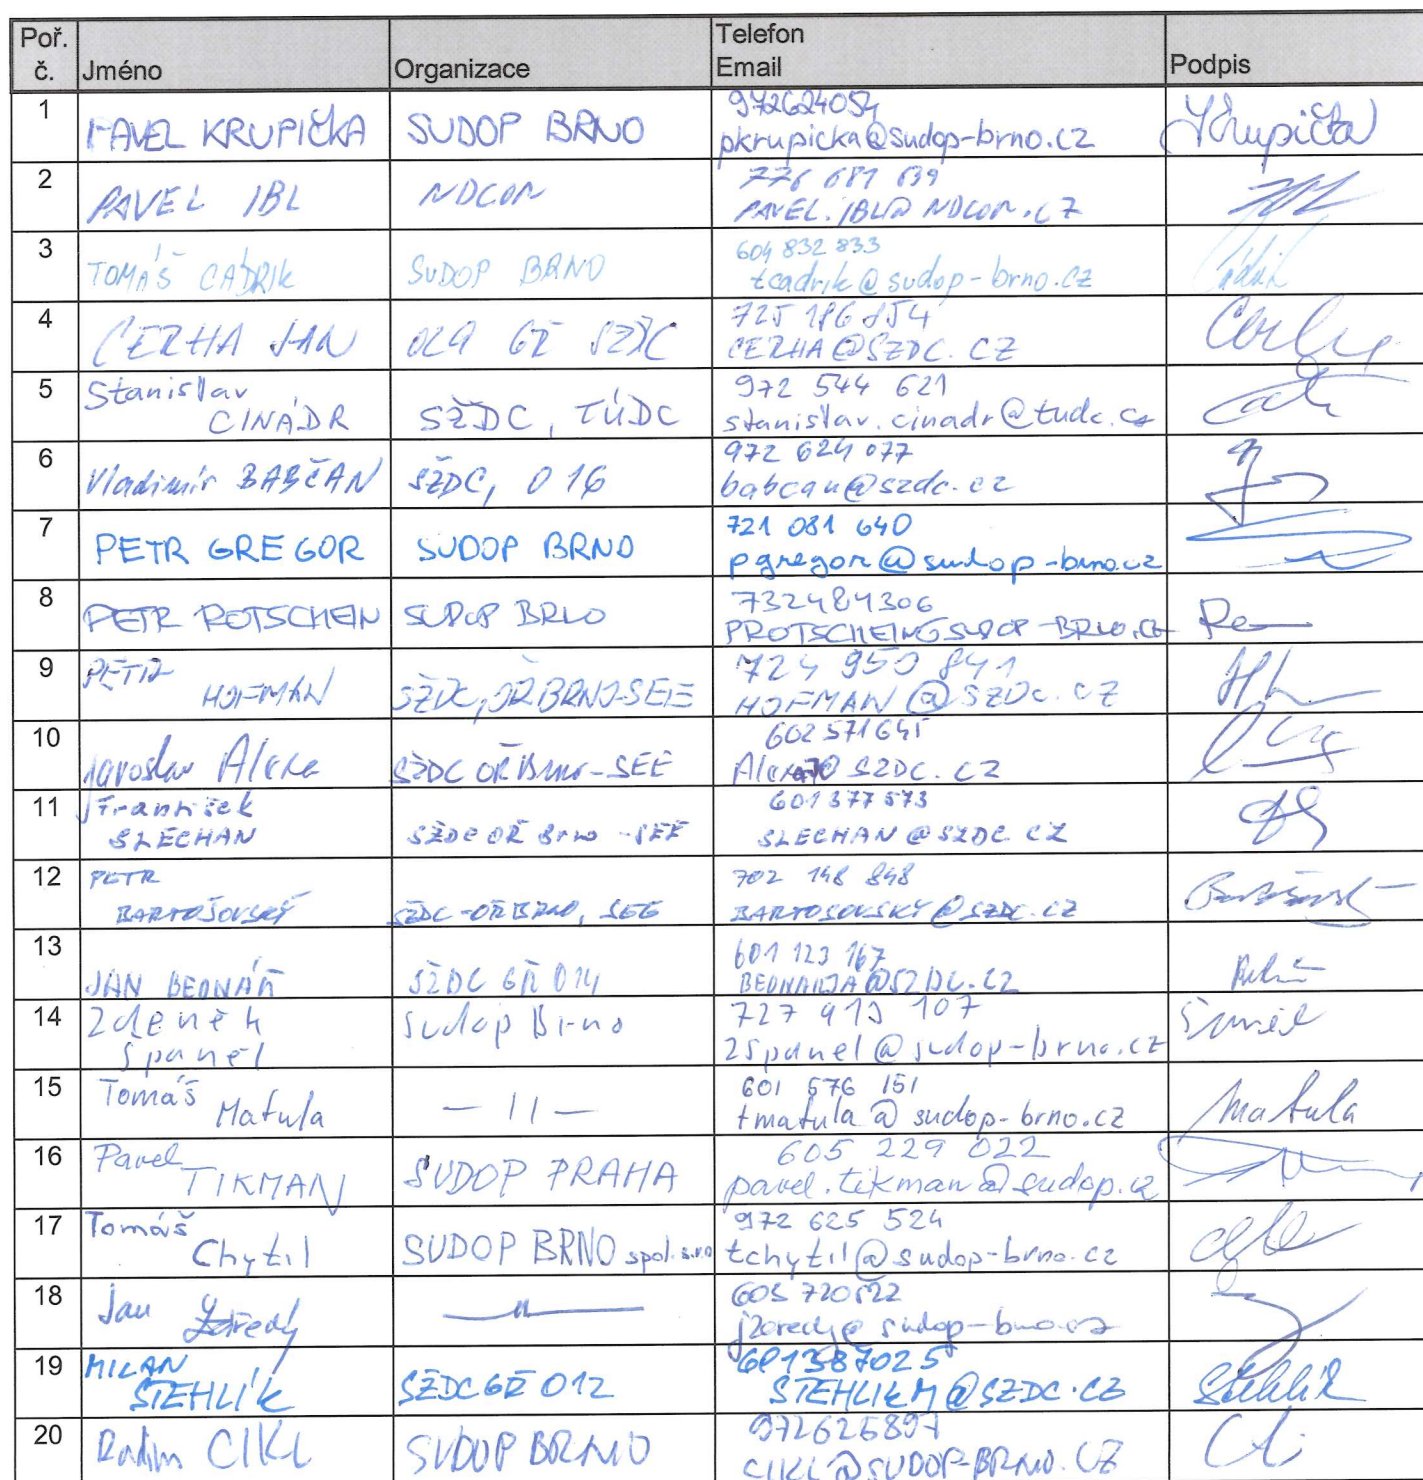 Poř. č. Jméno Organizace Telefon Email Podpis
1 PAVEL KRUPIČKA SUDOP BRNO 972624054 pkrupicka@sudop-brno.cz Krupička
2 PAVEL IBL NDCON 776 687 839 PAVEL.IBL@NDCON.CZ
3 TOMÁŠ CÁDRIK SUDOP BRNO 604 832 833 tcadrik@sudop-brno.cz
4 CERHA JAN GŘ SŽDC CERHA@SZDC.CZ
5 Stanislav CINÁDR SŽDC, TÚDC 972 544 621 stanislav.cinadr@tudc.cz
6 Vladimír BABČAN SŽDC, O 16 972 624 077 babcan@szdc.cz
7 PETR GREGOR SUDOP BRNO 721 081 640 pgregor@sudop-brno.cz
8 PETR ROTSCHEIN SUDOP BRNO 732484306 PROTSCHEIN@SUDOP-BRNO.CZ
9 PETR HOFMAN SŽDC, OŘ BRNO-SEE 724 950 841 HOFMAN@SZDC.CZ
10 Jaroslav Alexa SŽDC OŘ Brno-SEE
11 František SLECHAN SŽDC OŘ Brno-SEE 601377573 SLECHAN@SZDC.CZ
12 PETR BARTOŠOVSKÝ SŽDC-OŘ BRNO, SEE 702 148 848 BARTOSOVSKY@SZDC.CZ
13 JAN BEDNÁŘ SŽDC GŘ O14 601 123 167 BEDNARJA@SZDC.CZ
14 Zdeněk Španěl Sudop Brno 727 913 107 zspanel@sudop-brno.cz
15 Tomáš Matula — 11 — 601 576 151 tmatula@sudop-brno.cz Matula
16 Pavel TIKMAN SUDOP PRAHA 605 229 022 pavel.tikman@sudop.cz
17 Tomáš Chytil SUDOP BRNO spol. s.r.o 972 625 524 tchytil@sudop-brno.cz
18 Jan —11—
19 MILAN STEHLÍK SŽDC GŘ O12 601387025 STEHLIKM@SZDC.CZ Stehlík
20 Radim CIKL SUDOP BRNO 972626897 CIKL@SUDOP-BRNO.CZ